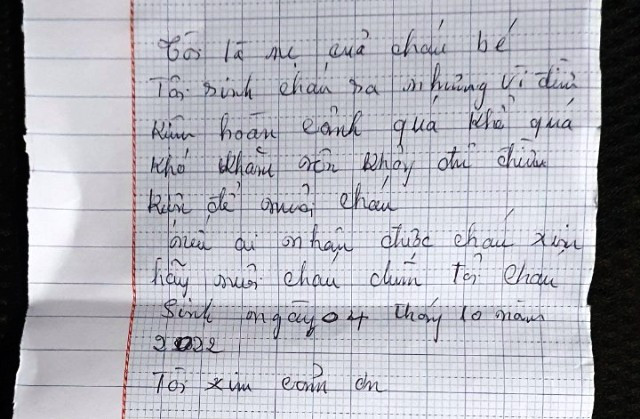 Tôi là mẹ của cháu bé
Tôi sinh cháu ra nhưng vì điều
kiện hoàn cảnh quá khổ quá
khó khăn nên không đủ điều
kiện để nuôi cháu
nếu ai nhận được cháu xin
hãy nuôi cháu dùm tôi cháu
Sinh ngày 04 tháng 10 năm
2022
Tôi xin cảm ơn